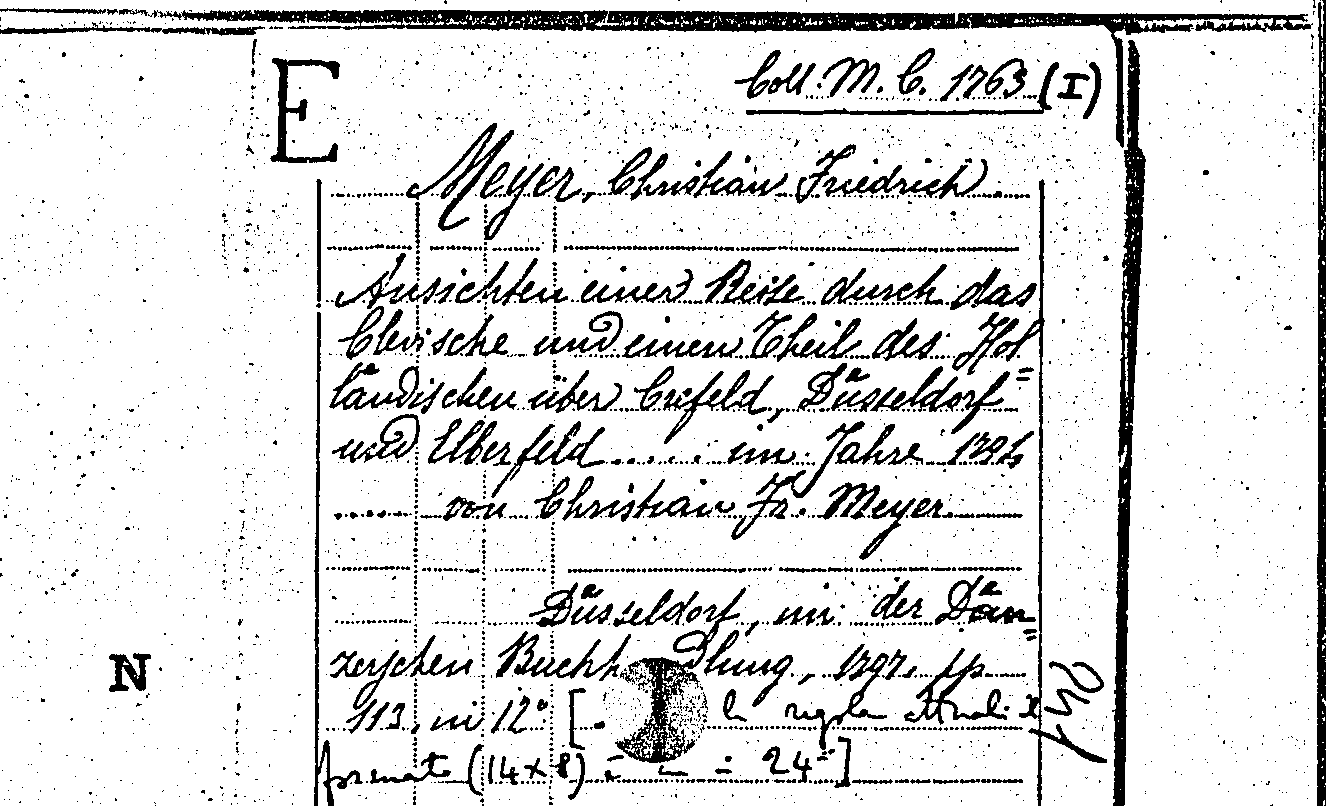 E
Coll. M. C. 1763 (I)
Meyer, Christian Friedrich.
Ansichten einer Reise durch das
Clevische und einen Theil des Hol=
ländischen über Crefeld, Düsseldorf
und Elberfeld..... im Jahre 1794
..... von Christian Fr. Meyer.
Düsseldorf, in der Dän=
zerschen Buchh dlung, 1797, pp
N
113, in 12° [. la regola attuale il
formato (14x8) = 24°]